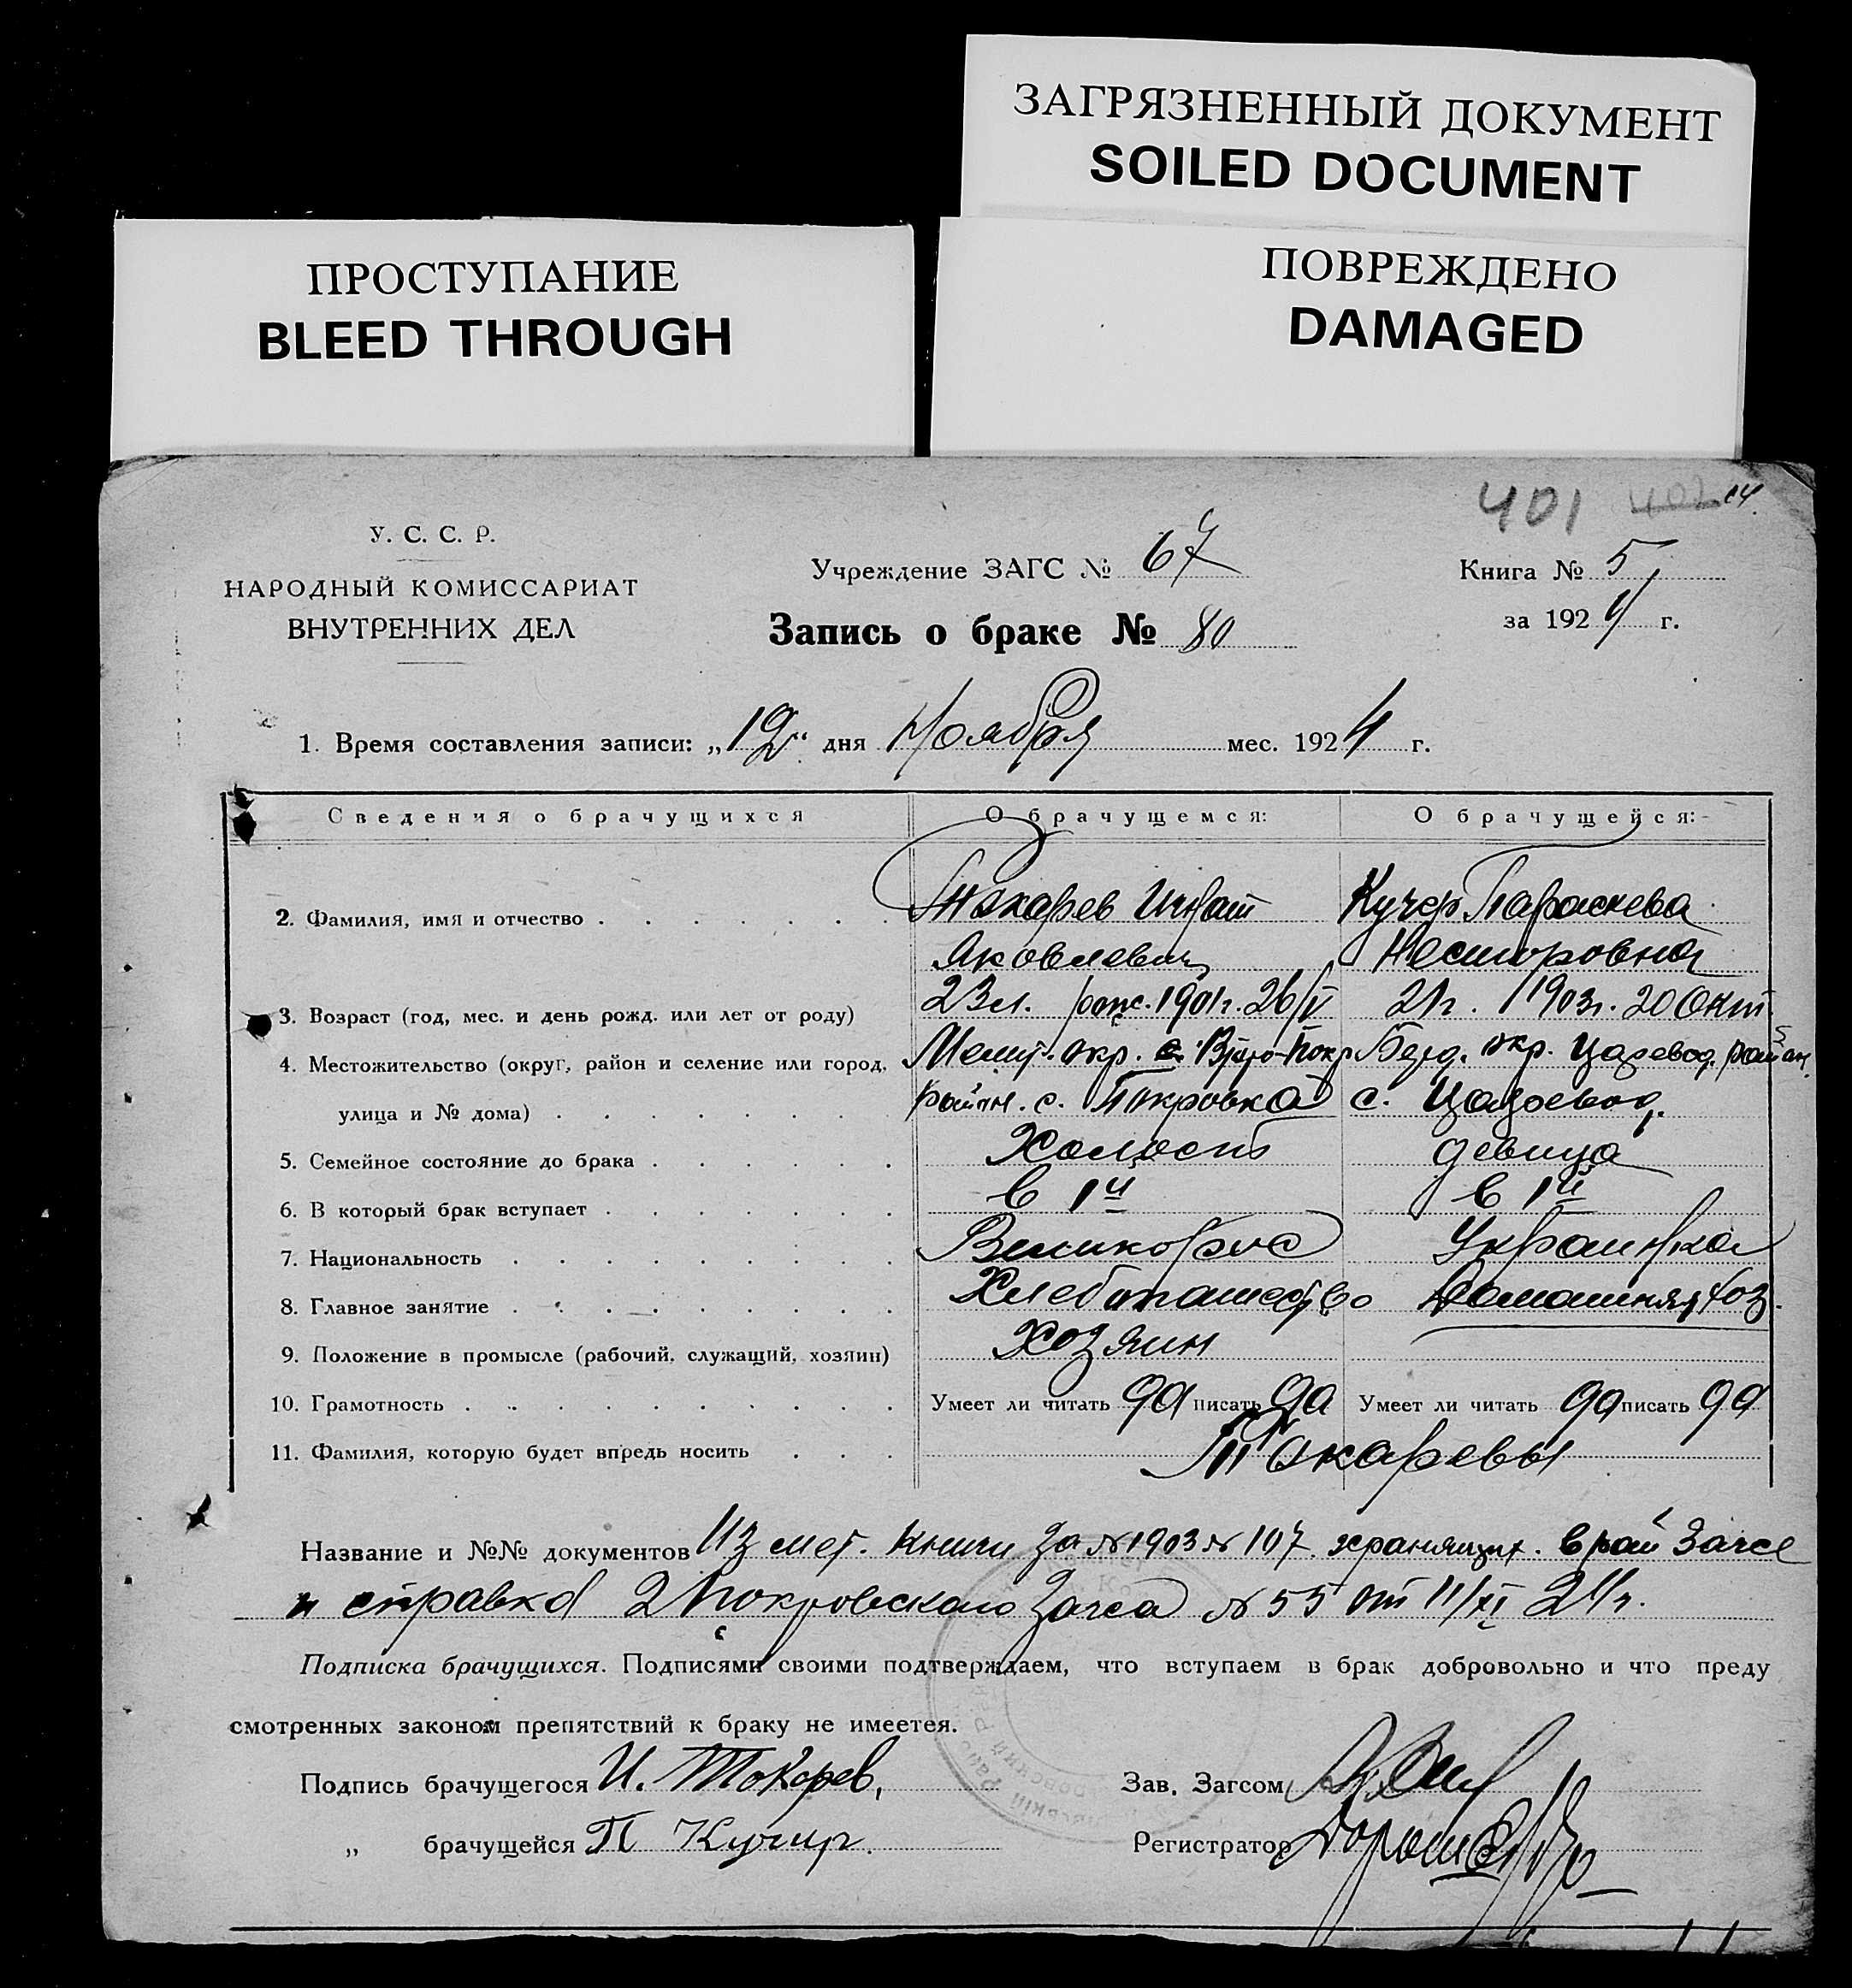 ЗАГРЯЗНЕННЫЙ ДОКУМЕНТ
SOILED DOCUMENT
ПРОСТУПАНИЕ
BLEED THROUGH
ПОВРЕЖДЕНО
DAMAGED
401 402
У. С. С. Р.
НАРОДНЫЙ КОМИССАРИАТ
ВНУТРЕННИХ ДЕЛ
Учреждение ЗАГС № 67
Запись о браке № 80
Книга № 5
за 1924 г.
1. Время составления записи: „12“ дня Ноября мес. 1924 г.
Сведения о брачущихся О брачущемся: О брачущейся:
2. Фамилия, имя и отчество Токарев Игнат Кучер Параскева
Яковлевич Несторовна
3. Возраст (год, мес. и день рожд. или лет от роду) 23 л. рож. 1901 г. 26/V 21 г. 1903 г. 20 Окт.
4. Местожительство (округ, район и селение или город, Мелит. окр. Втро-Покр Берд. окр. Царевод. район
улица и № дома) район. с. Покровка с. Царевод.
5. Семейное состояние до брака Холост девица
6. В который брак вступает в 1й в 1й
7. Национальность Великорос Украинка
8. Главное занятие Хлебопашество Домашняя хоз.
9. Положение в промысле (рабочий, служащий, хозяин) Хозяин
10. Грамотность Умеет ли читать да писать да Умеет ли читать да писать да
11. Фамилия, которую будет впредь носить Токаревы
Название и №№ документов Из мет. книги за № 1903 № 107 хранящих. в рай Загсе
и справка 2 Покровского Загса № 55 от 11/XI 24 г.
Подписка брачущихся. Подписями своими подтверждаем, что вступаем в брак добровольно и что преду
смотренных законом препятствий к браку не имеетея.
Подпись брачущегося И. Токарев, Зав. Загсом
„ брачущейся П Кучир. Регистратор